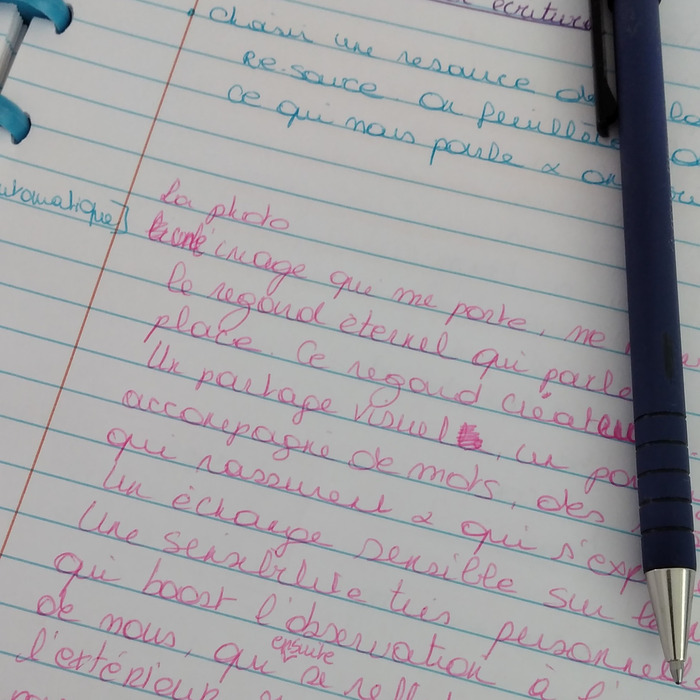 écriture
choisir une resource de la
Re-source ou feuillet
ce qui nous parle & on
automatique]
la photo
image qui me porte, me
le regard éternel qui parle
place. Ce regard créateur
Un partage visuel, un
accompagné de mots, des
qui rassurent & qui s'exp
Un échange sensible sur la
Une sensibilité très personnel
qui boost l'observation à l'
de nous, qui ensuite se
l'extérieur